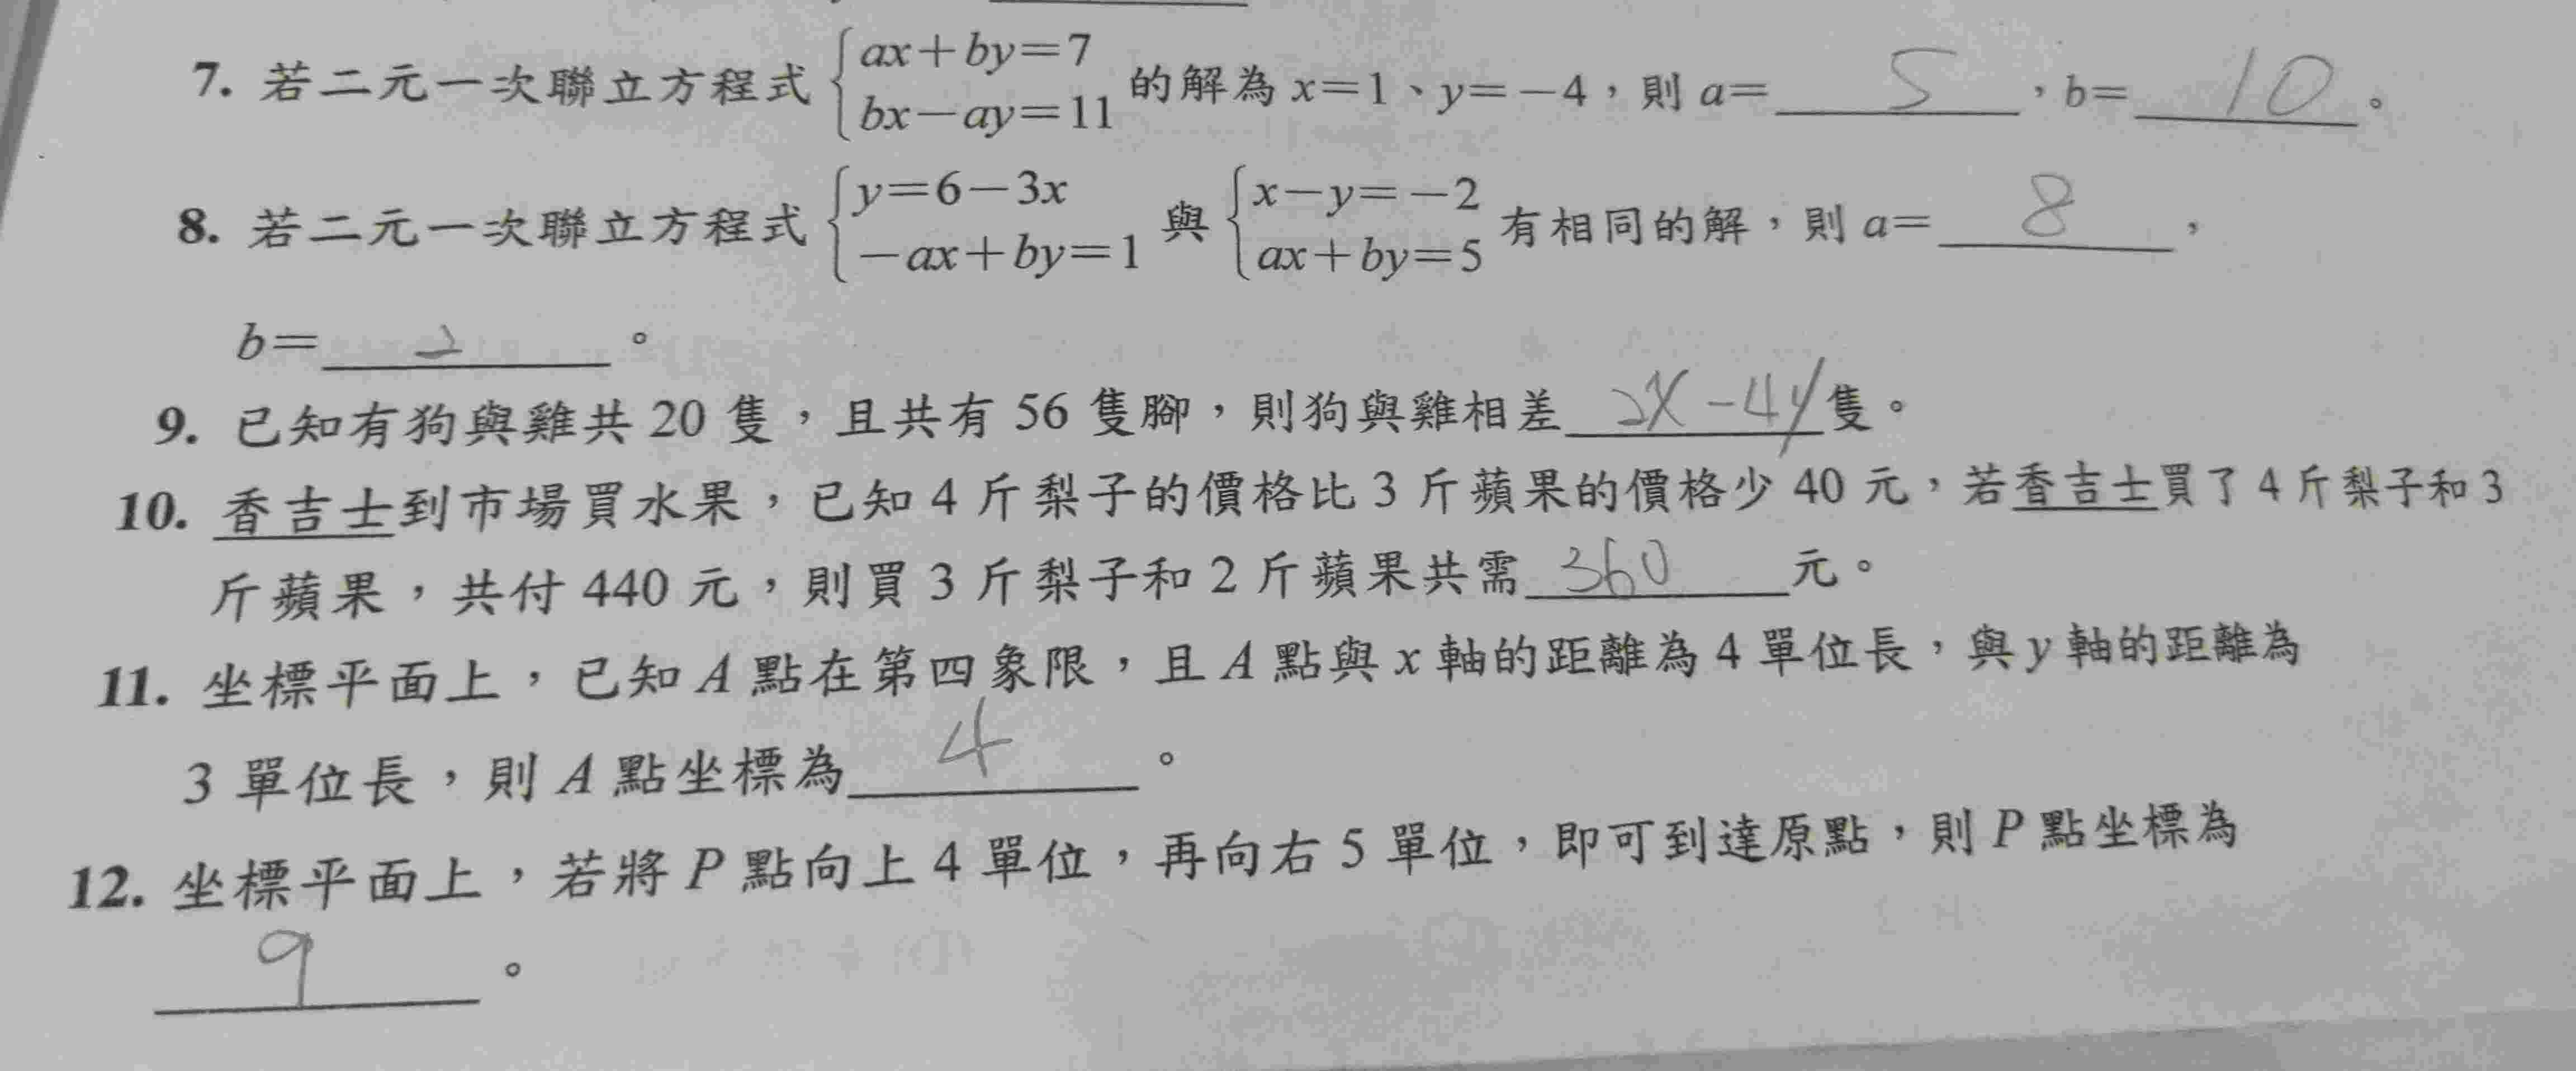 7. 若二元一次聯立方程式 { ax+by=7 bx-ay=11 的解為 x=1、y=-4,則 a= 5 ,b= 10 。
8. 若二元一次聯立方程式 { y=6-3x -ax+by=1 與 { x-y=-2 ax+by=5 有相同的解,則 a= 8 ,
b= 2 。
9. 已知有狗與雞共 20 隻,且共有 56 隻腳,則狗與雞相差 2x-4y 隻。
10. 香吉士到市場買水果,已知 4 斤梨子的價格比 3 斤蘋果的價格少 40 元,若香吉士買了 4 斤梨子和 3
斤蘋果,共付 440 元,則買 3 斤梨子和 2 斤蘋果共需 360 元。
11. 坐標平面上,已知 A 點在第四象限,且 A 點與 x 軸的距離為 4 單位長,與 y 軸的距離為
3 單位長,則 A 點坐標為 4 。
12. 坐標平面上,若將 P 點向上 4 單位,再向右 5 單位,即可到達原點,則 P 點坐標為
9 。